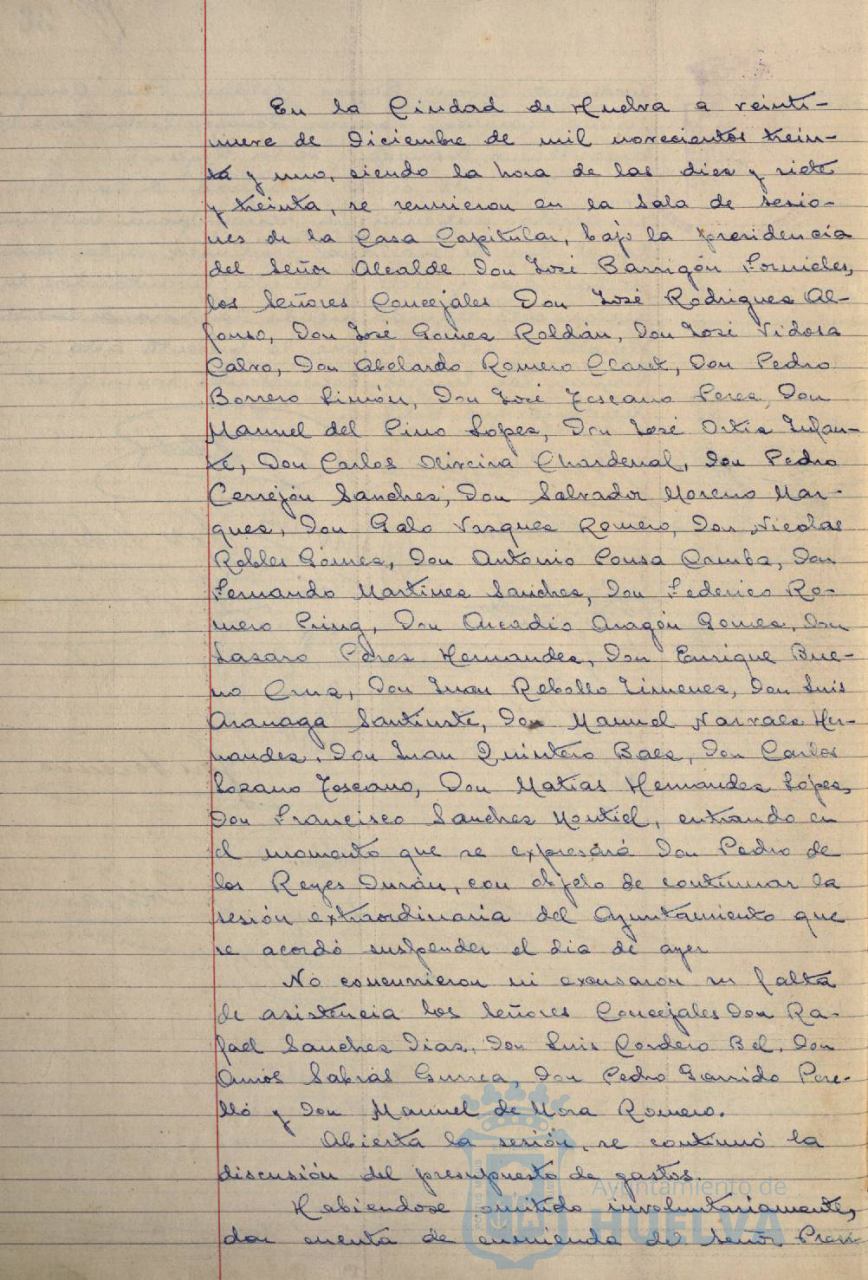 En la Ciudad de Huelva a veinti-
nueve de Diciembre de mil novecientos trein-
ta y uno, siendo la hora de las dies y siete
y treinta, se reunieron en la Sala de sesio-
nes de la Casa Capitular, bajo la presidencia
del Señor Alcalde Don José Barrigón Fornieles,
los Señores Concejales Don José Rodrigues Al-
fonso, Don José Gomes Roldán, Don José Vidosa
Calvo, Don Abelardo Romero Claret, Don Pedro
Borrero Limón, Don José Toscano Peres, Don
Manuel del Pino Lopes, Don José Ortis Infan-
te, Don Carlos Oliveira Chardenal, Don Pedro
Cerrejón Sanches, Don Salvador Moreno Mar-
ques, Don Galo Vasques Romero, Don Nicolas
Robles Gómes, Don Antonio Pousa Camba, Don
Fernando Martines Sanches, Don Federico Ro-
mero Pring, Don Arcadio Aragón Gomes, Don
Lasaro Peres Hernandes, Don Enrique Bue-
no Crus, Don Juan Rebollo Jimenes, Don Luis
Aranaga Santiuste, Don Manuel Narvaes Her-
nandes, Don Juan Quintero Baes, Don Carlos
Lozano Toscano, Don Matías Hernandes Lópes,
Don Francisco Sanches Montiel, entrando en
el momento que se expresará Don Pedro de
los Reyes Durán, con objeto de continuar la
sesión extraordinaria del Ayuntamiento que
se acordó suspender el dia de ayer
No concurrieron ni excusaron su falta
de asistencia los Señores Concejales Don Ra-
fael Sanches Dias, Don Luis Cordero Bel, Don
Amós Sabrás Gurrea, Don Pedro Garrido Pere-
lló y Don Manuel de Mora Romero.
Abierta la sesión, se continuó la
discusión del presupuesto de gastos.
Habiendose omitido involuntariamente,
dar cuenta de enmienda del Señor Presi-
Ayuntamiento de
HUELVA